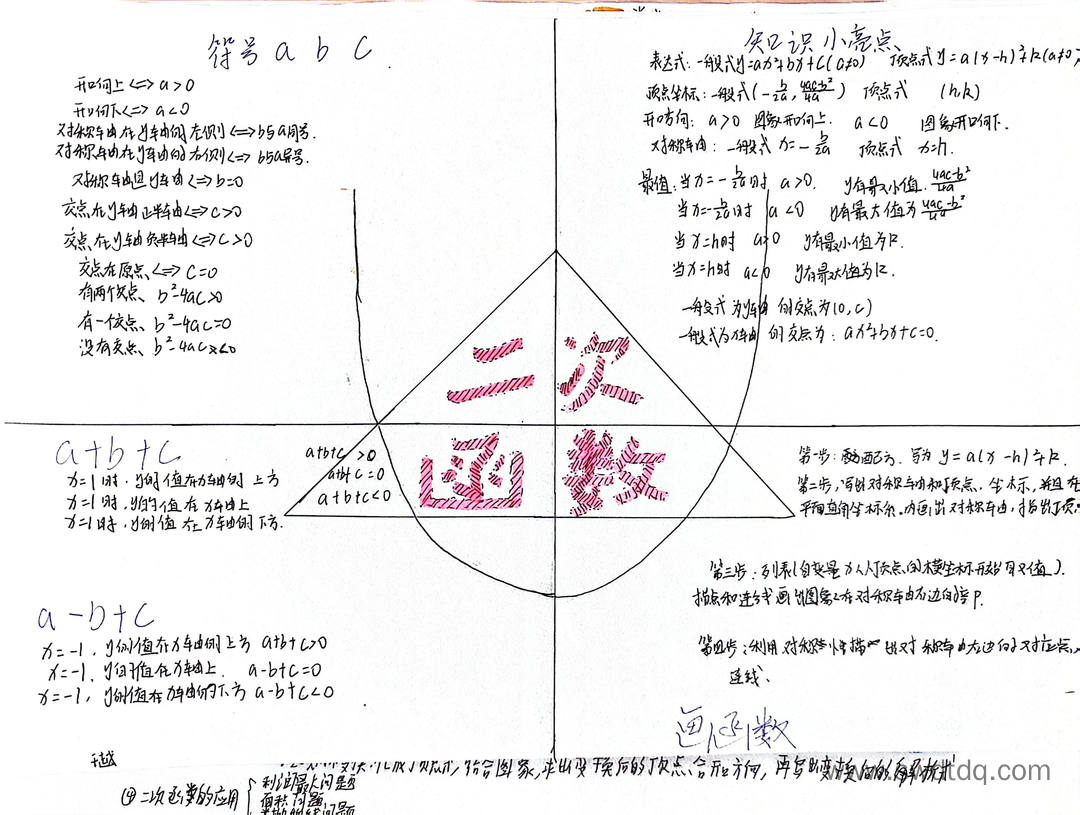 符号 a b c
开口向上<=>a>0
开口向下<=>a<0
对称轴在y轴的左侧<=>b与a同号.
对称轴在y轴的右侧<=>b与a异号.
对称轴是y轴<=>b=0
交点在y轴正半轴<=>c>0
交点在y轴负半轴<=>c>0
交点在原点<=>c=0
有两个交点、b²-4ac>0
有一个交点、b²-4ac=0
没有交点、b²-4ac<0
知识小亮点
表达式:一般式y=ax²+bx+c(a≠0) 顶点式y=a(x-h)²+k(a≠0)
顶点坐标:一般式(-b/2a, 4ac-b²/4a) 顶点式 (h,k)
开口方向: a>0 图象开口向上. a<0 图象开口向下.
对称轴: 一般式 x=-b/2a 顶点式 x=h.
最值:当x=-b/2a时 a>0. y有最小值. 4ac-b²/4a
当x=-b/2a时 a<0 y有最大值为4ac-b²/4a
当x=h时 a>0 y有最小值为k.
当x=h时 a<0 y有最大值为k.
一般式为y轴的交点为(0,c)
一般式为x轴的交点为: ax²+bx+c=0.
二次
函数
a+b+c
x=1时.y的值在x轴的上方
x=1时,y的值在x轴上
x=1时,y的值在x轴的下方.
a+b+c>0
a+b+c=0
a+b+c<0
a-b+c
x=-1.y的值在x轴的上方 a+b+c>0
x=-1.y的值在x轴上. a-b+c=0
x=-1,y的值在x轴的下方 a-b+c<0
第一步:配方.写为 y=a(x-h)²+k.
第二步,写出对称轴和顶点.坐标,并且在
平面直角坐标系.内画出对称轴,描出顶点
第三步:列表(自变量为从顶点的横坐标开始取值).
描点和连线画出图象在对称轴右边的部.
第四步:利用对称性描出对称轴左边的对应点,
连线.
画函数
结合图象,求出变换后的顶点.合和方向,再写出变换后的解析式
④二次函数的应用
利润最大问题
面积问题
www.tdq.com